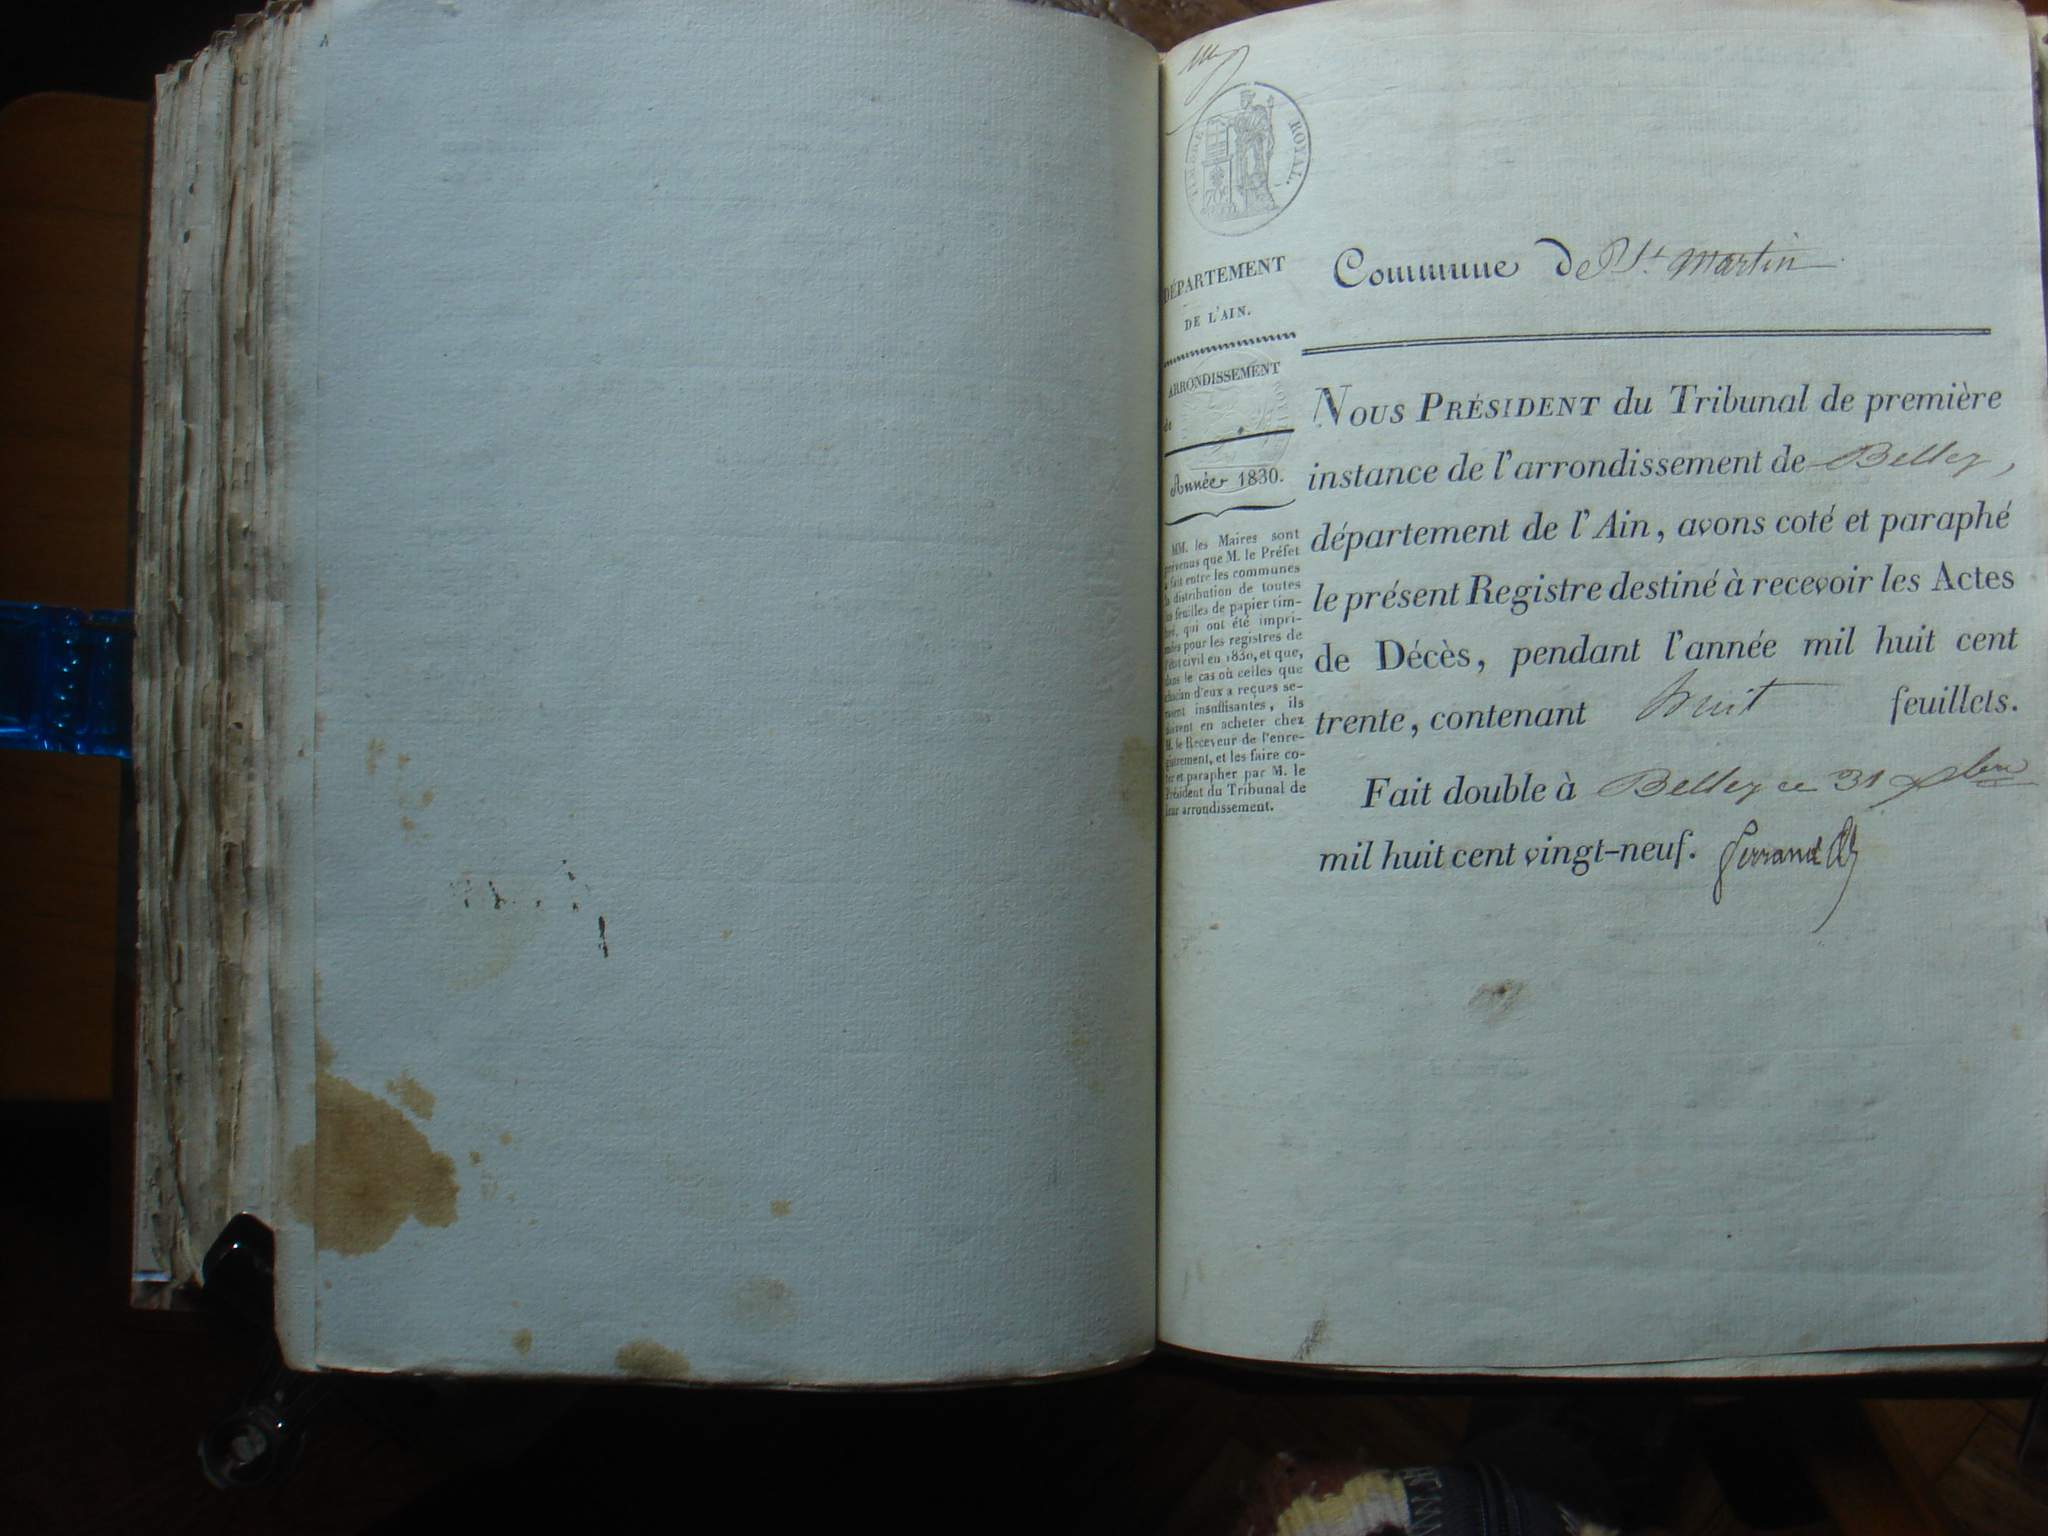 TIMBRE ROYAL.
DÉPARTEMENT
DE L'AIN.
ARRONDISSEMENT
de
Année 1830.
MM. les Maires sont
prévenus que M. le Préfet
a fait entre les communes
la distribution de toutes
les feuilles de papier tim-
bré, qui ont été impri-
mées pour les registres de
l'état civil en 1830, et que,
dans le cas où celles que
chacun d'eux a reçues se-
raient insuffisantes, ils
doivent en acheter chez
M. le Receveur de l'enre-
gistrement, et les faire co-
ter et parapher par M. le
Président du Tribunal de
leur arrondissement.
Commune de St. Martin
NOUS PRÉSIDENT du Tribunal de première
instance de l'arrondissement de Belley,
département de l'Ain, avons coté et paraphé
le présent Registre destiné à recevoir les Actes
de Décès, pendant l'année mil huit cent
trente, contenant huit feuillets.
Fait double à Belley ce 31 Xbre
mil huit cent vingt-neuf.